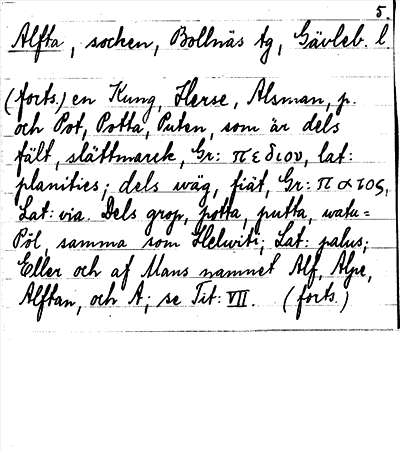 5.
Alfta, socken, Bollnäs tg, Gävleb. l
(forts.) en Kung, Herse, Alsman, p.
och Pot, Potta, Puten, som är dels
fält, slättmarck, Gr: πεδιον, lat:
planities; dels wäg, fiät, Gr: πατος,
Lat: via. Dels grop, potta, putta, watu=
Pöl, samma som Helwiti; Lat: palus;
Eller och af Mans namnet Alf, Alpe,
Alftan, och A; se Tit: VII. (forts.)